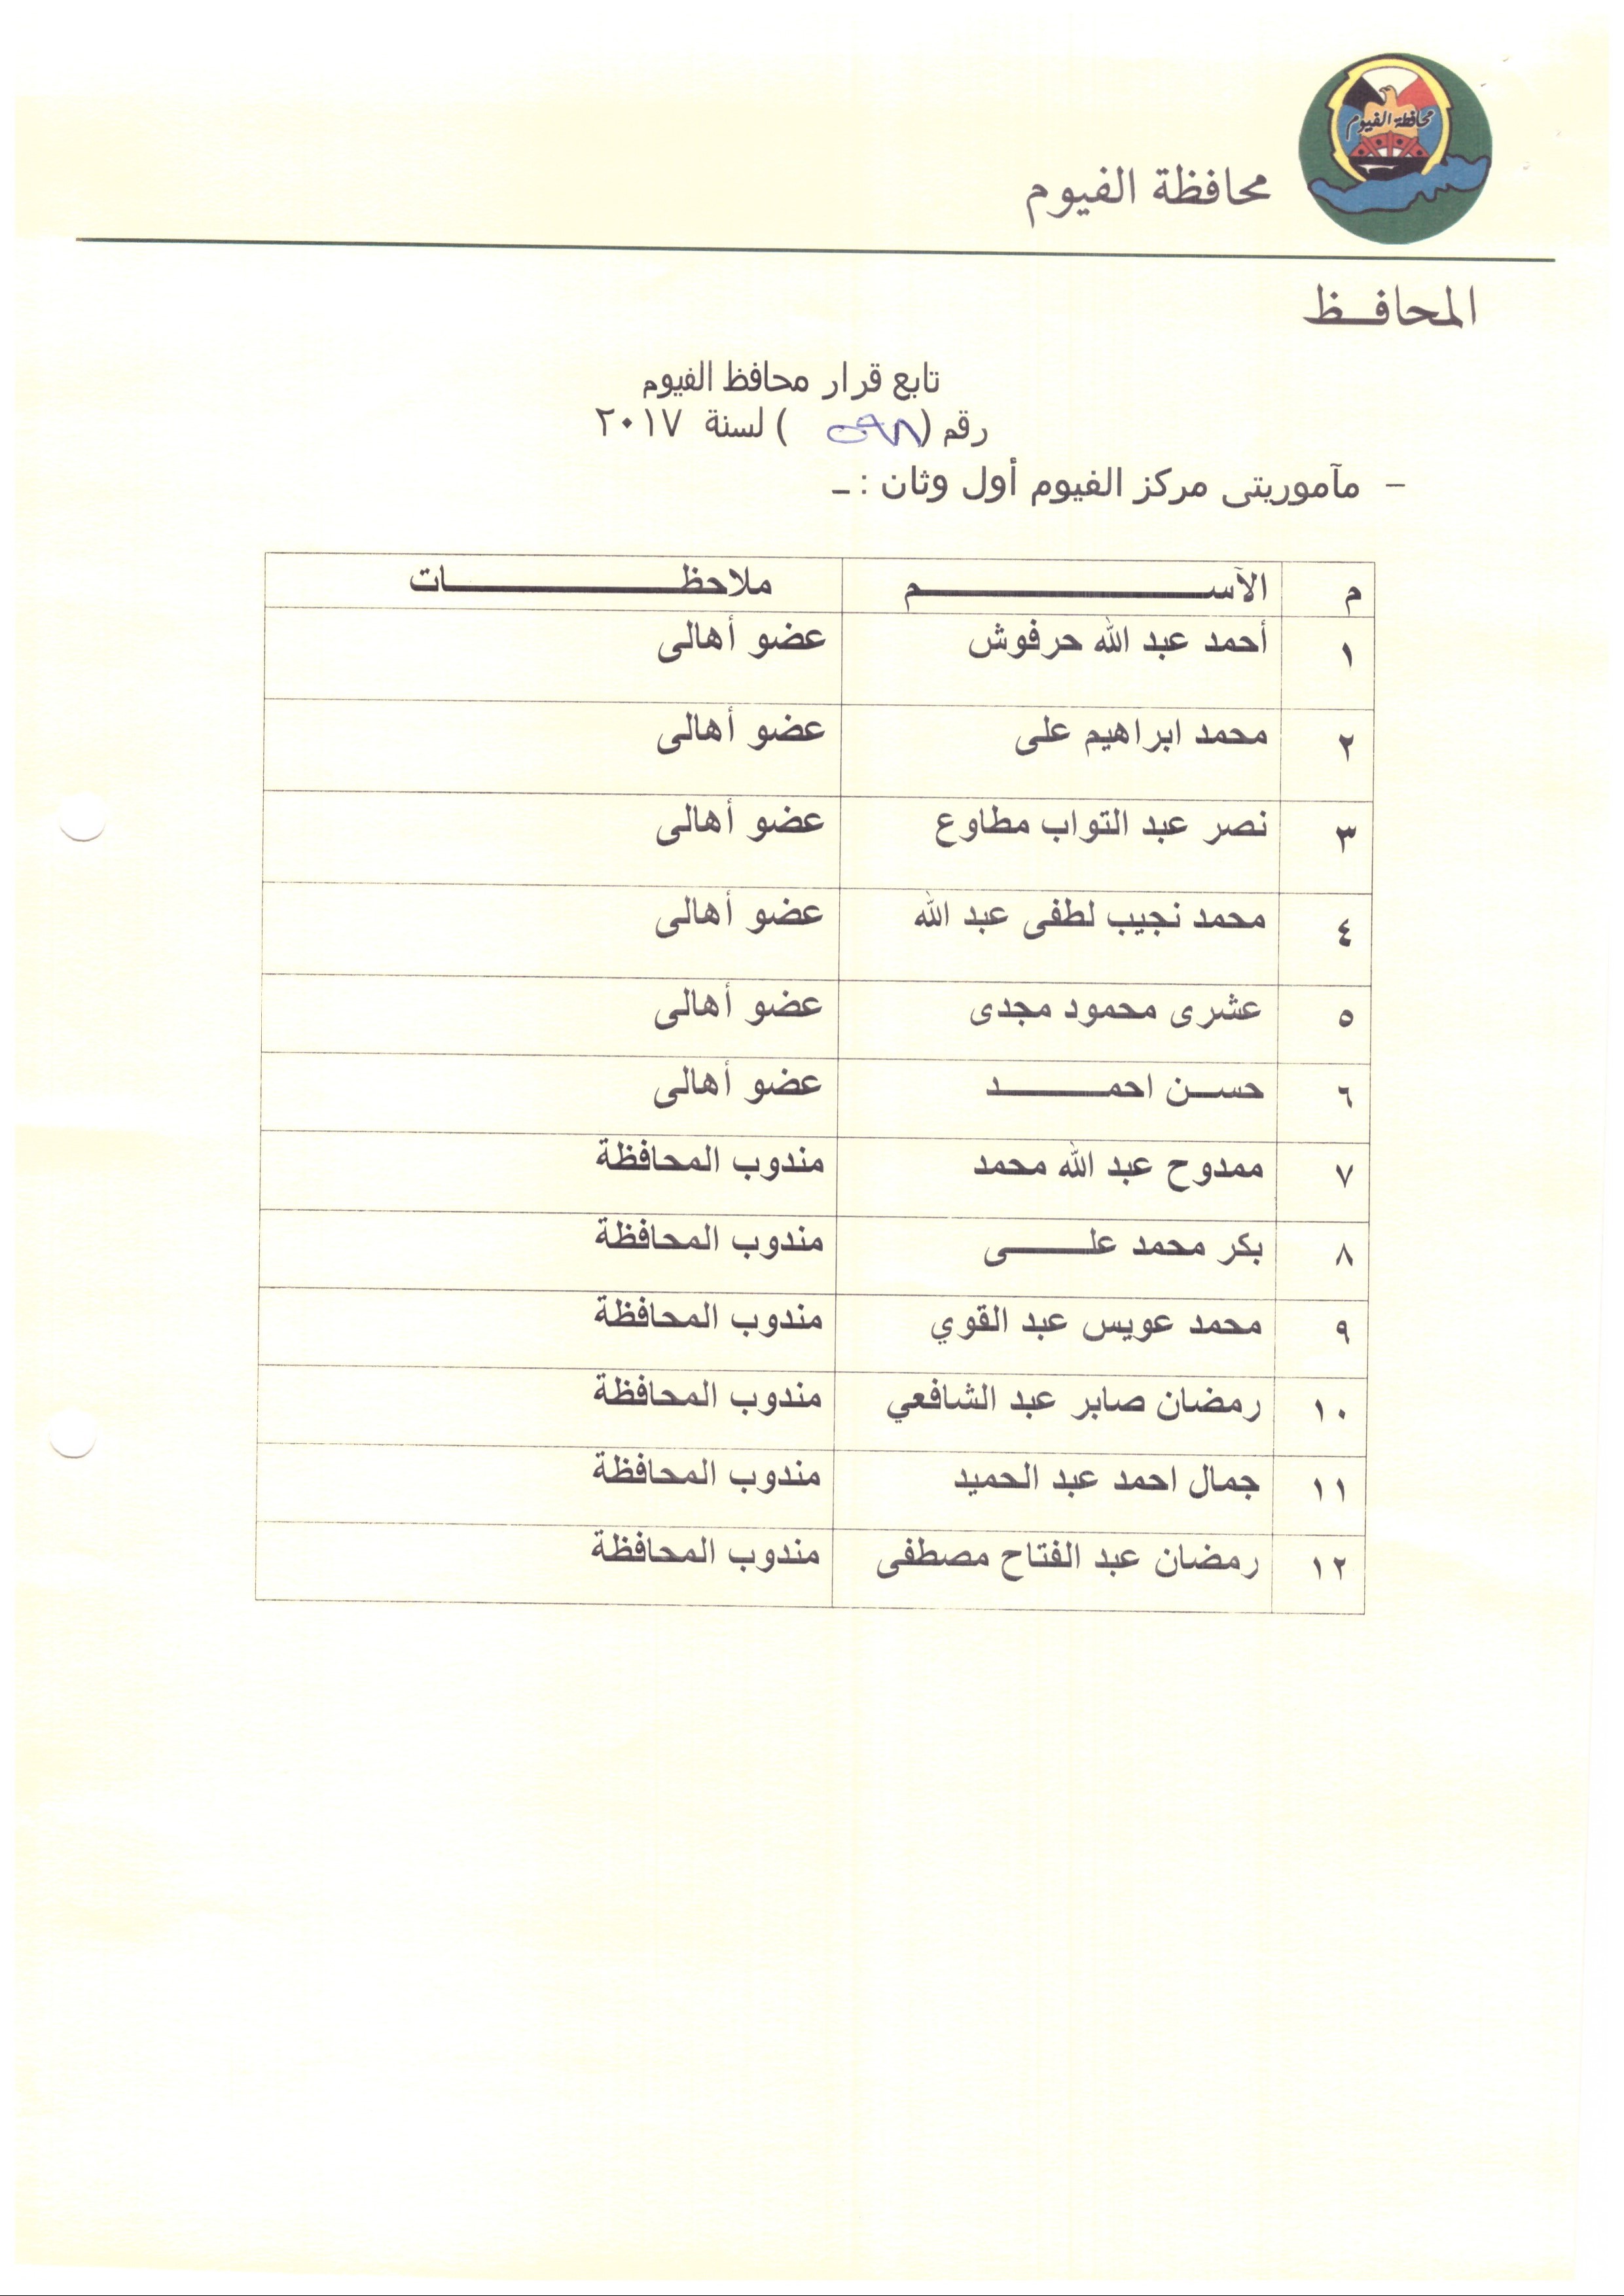 محافظة الفيوم
محافظة الفيوم
المحافـــظ
تابع قرار محافظ الفيوم
رقم (٥٩٨ ) لسنة ٢٠١٧
- مآموريتى مركز الفيوم أول وثان : ـ
م الآســــــــــــــم ملاحظــــــــــــــات
١ أحمد عبد الله حرفوش عضو أهالى
٢ محمد ابراهيم على عضو أهالى
٣ نصر عبد التواب مطاوع عضو أهالى
٤ محمد نجيب لطفى عبد الله عضو أهالى
٥ عشرى محمود مجدى عضو أهالى
٦ حســن احمــــــــد عضو أهالى
٧ ممدوح عبد الله محمد مندوب المحافظة
٨ بكر محمد علــــــى مندوب المحافظة
٩ محمد عويس عبد القوي مندوب المحافظة
١٠ رمضان صابر عبد الشافعي مندوب المحافظة
١١ جمال احمد عبد الحميد مندوب المحافظة
١٢ رمضان عبد الفتاح مصطفى مندوب المحافظة